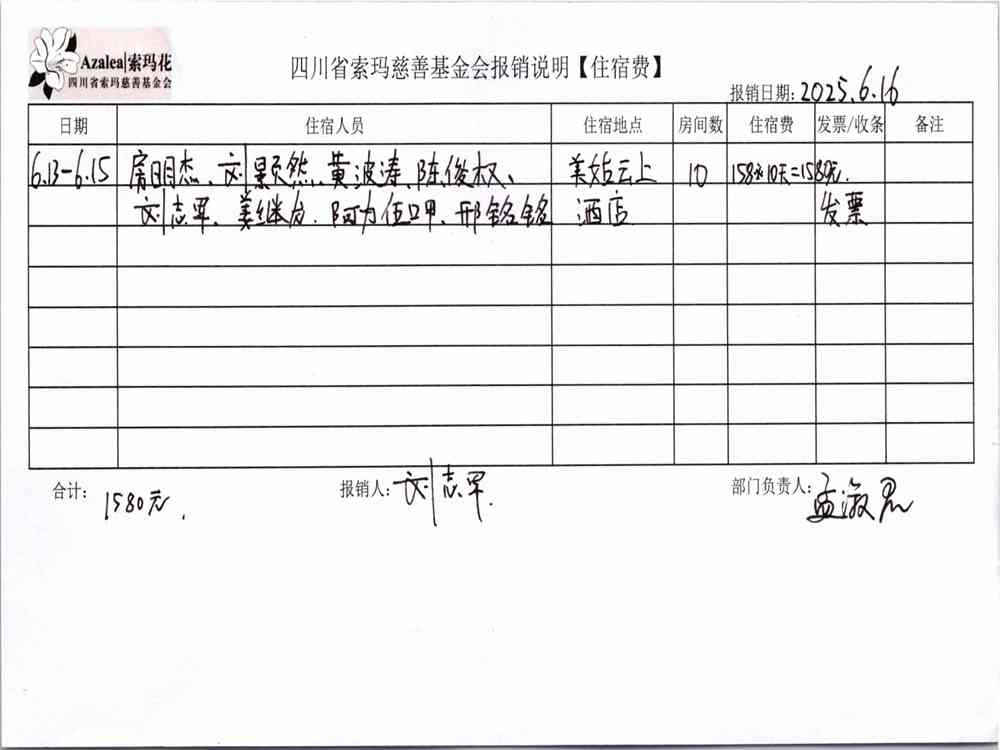 Azalea|索玛花
四川省索玛慈善基金会
四川省索玛慈善基金会报销说明【住宿费】
报销日期：2025.6.16
日期 住宿人员 住宿地点 房间数 住宿费 发票/收条 备注
6.13-6.15 房明杰、刘景然、黄波涛、陈俊权、 美姑云上 10 158*10天=1580元.
刘志军、姜继为.阿力伍呷、邢铭铭 酒店 发票
合计：1580元. 报销人：刘志军. 部门负责人：孟淑君